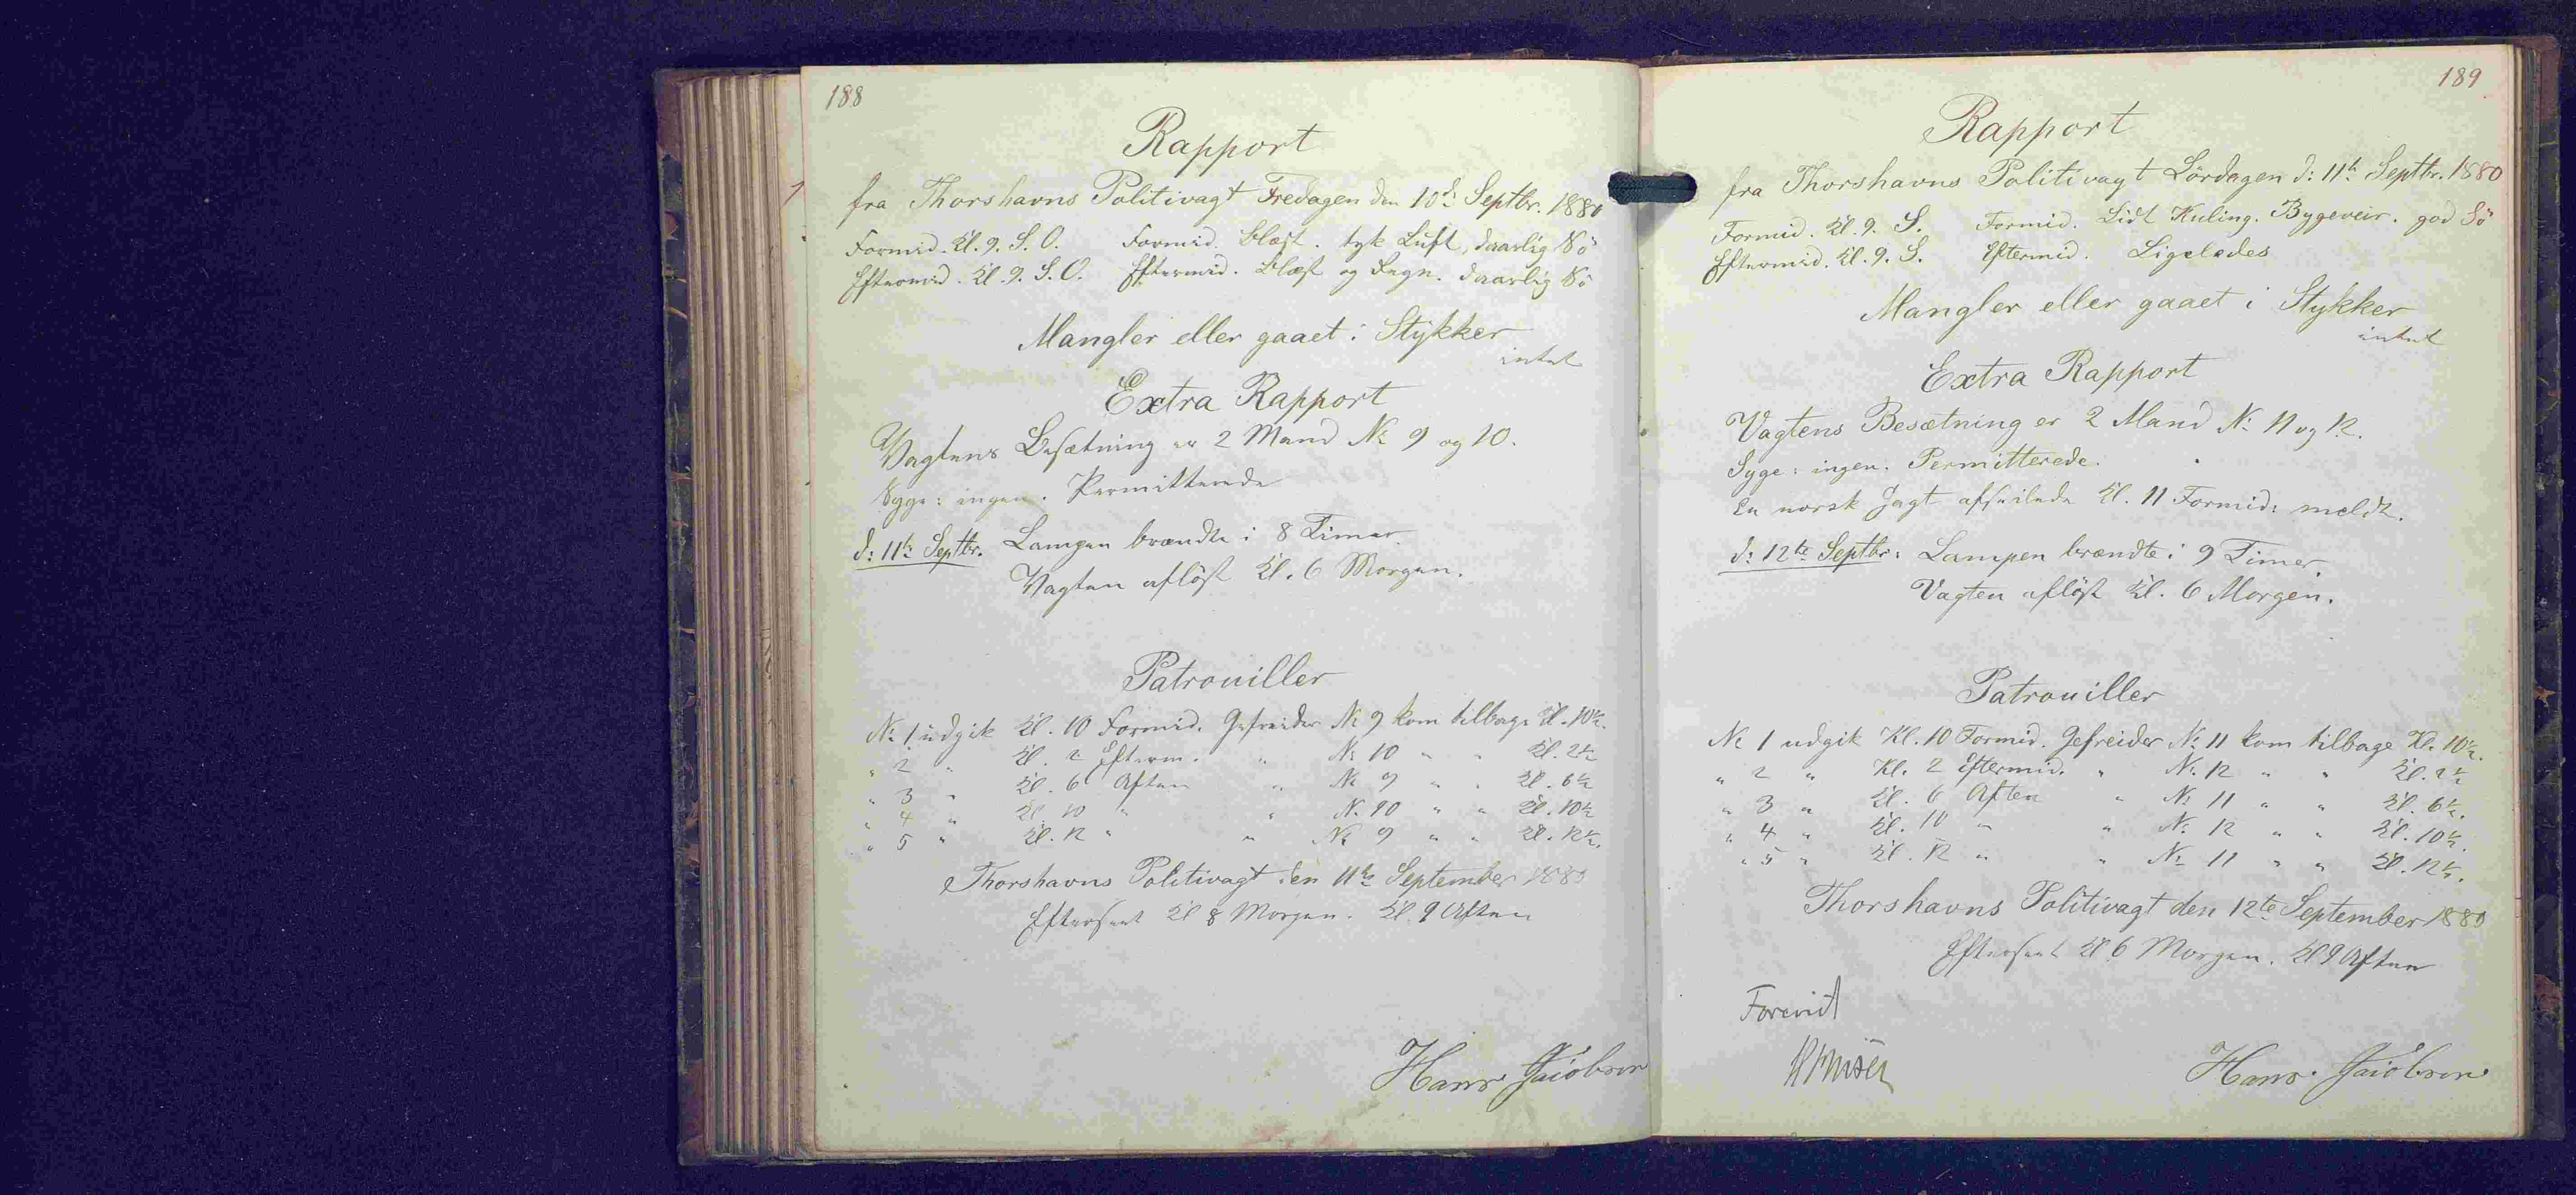 188
Rapport
fra Thorshavns Politivagt Fredagen den 10de Septbr. 1880
Formid. Kl. 9. S. O. Formid. blæst. tyk Luft, daarlig Sö
Eftermid. Kl. 9. S. O. Eftermid. blæst og Regn. daarlig Sö
Mangler eller gaaet i Stykker
intet
Extra Rapport
Vagtens Besætning er 2 Mand No 9 og 10.
Syge: ingen. Permitterede
d: 11te Septbr. Lampen brændte i 8 Timer.
Vagten aflöst Kl. 6 Morgen.
Patrouiller
No 1 udgik Kl. 10 Formid. Gefreider No 9 kom tilbage Kl. 10½.
" 2 " Kl. 2 Efterm. " No 10 " " Kl. 2½
" 3 " Kl. 6 Aften " No 9 " " Kl. 6½
" 4 " Kl. 10 " " No 10 " " Kl. 10½
" 5 " Kl. 12 " " No 9 " " Kl. 12½.
Thorshavns Politivagt den 11te September 1880
Efterseet Kl 8 Morgen. Kl. 9 Aften
Hans Jacobsen
189
Rapport
fra Thorshavns Politivagt Lördagen d: 11te Septbr. 1880
Formid. Kl. 9. S. Formid. Lidt Kuling. Bygeveir. god Sö
Eftermid. Kl. 9. S. Eftermid. Ligeledes
Mangler eller gaaet i Stykker
intet
Extra Rapport
Vagtens Besætning er 2 Mand No 11 og 12.
Syge: ingen. Permitterede.
En norsk Jagt afseilede Kl. 11 Formid: meldt.
d: 12te Septbr: Lampen brændte i 9 Timer.
Vagten aflöst Kl. 6 Morgen.
Patrouiller
No 1 udgik Kl. 10 Formid. Gefreider No 11 kom tilbage Kl. 10½.
" 2 " Kl. 2 Eftermid. " No 12 " " Kl. 2½
" 3 " Kl. 6 Aften " No 11 " " Kl. 6½.
" 4 " Kl. 10 " " No 12 " " Kl. 10½.
" 5 " Kl. 12 " " No 11 " " Kl. 12½.
Thorshavns Politivagt den 12te September 1880
Efterseet Kl 6 Morgen. Kl 9 Aften
Forevist
Hans Jacobsen